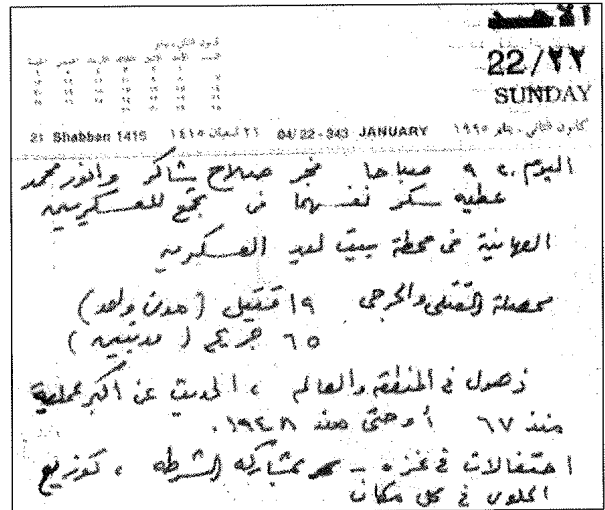 الأحد
22/٢٢
SUNDAY
21 Shabban 1415 ٢١ شعبان ١٤١٥ 04/22-343 JANUARY كانون ثاني - يناير ١٩٩٥
اليوم ٩،٢ صباحا فجر صلاح شاكر وانور محمد
عطيه سكر نفسهما في تجمع للعسكريين
الصهاينة في محطة بيت ليد العسكريه
محصلة القتلى والجرحى ١٩ قتيل (مدن واحد)
٦٥ جريح (مدنيين)
ذهول في المنطقة والعالم ، الحديث عن أكبر عملية
منذ ٦٧ أو حتى منذ ١٩٤٨.
احتفالات في غزه - بمشاركه الشرطه ، توزيع
الحلوى في كل مكان